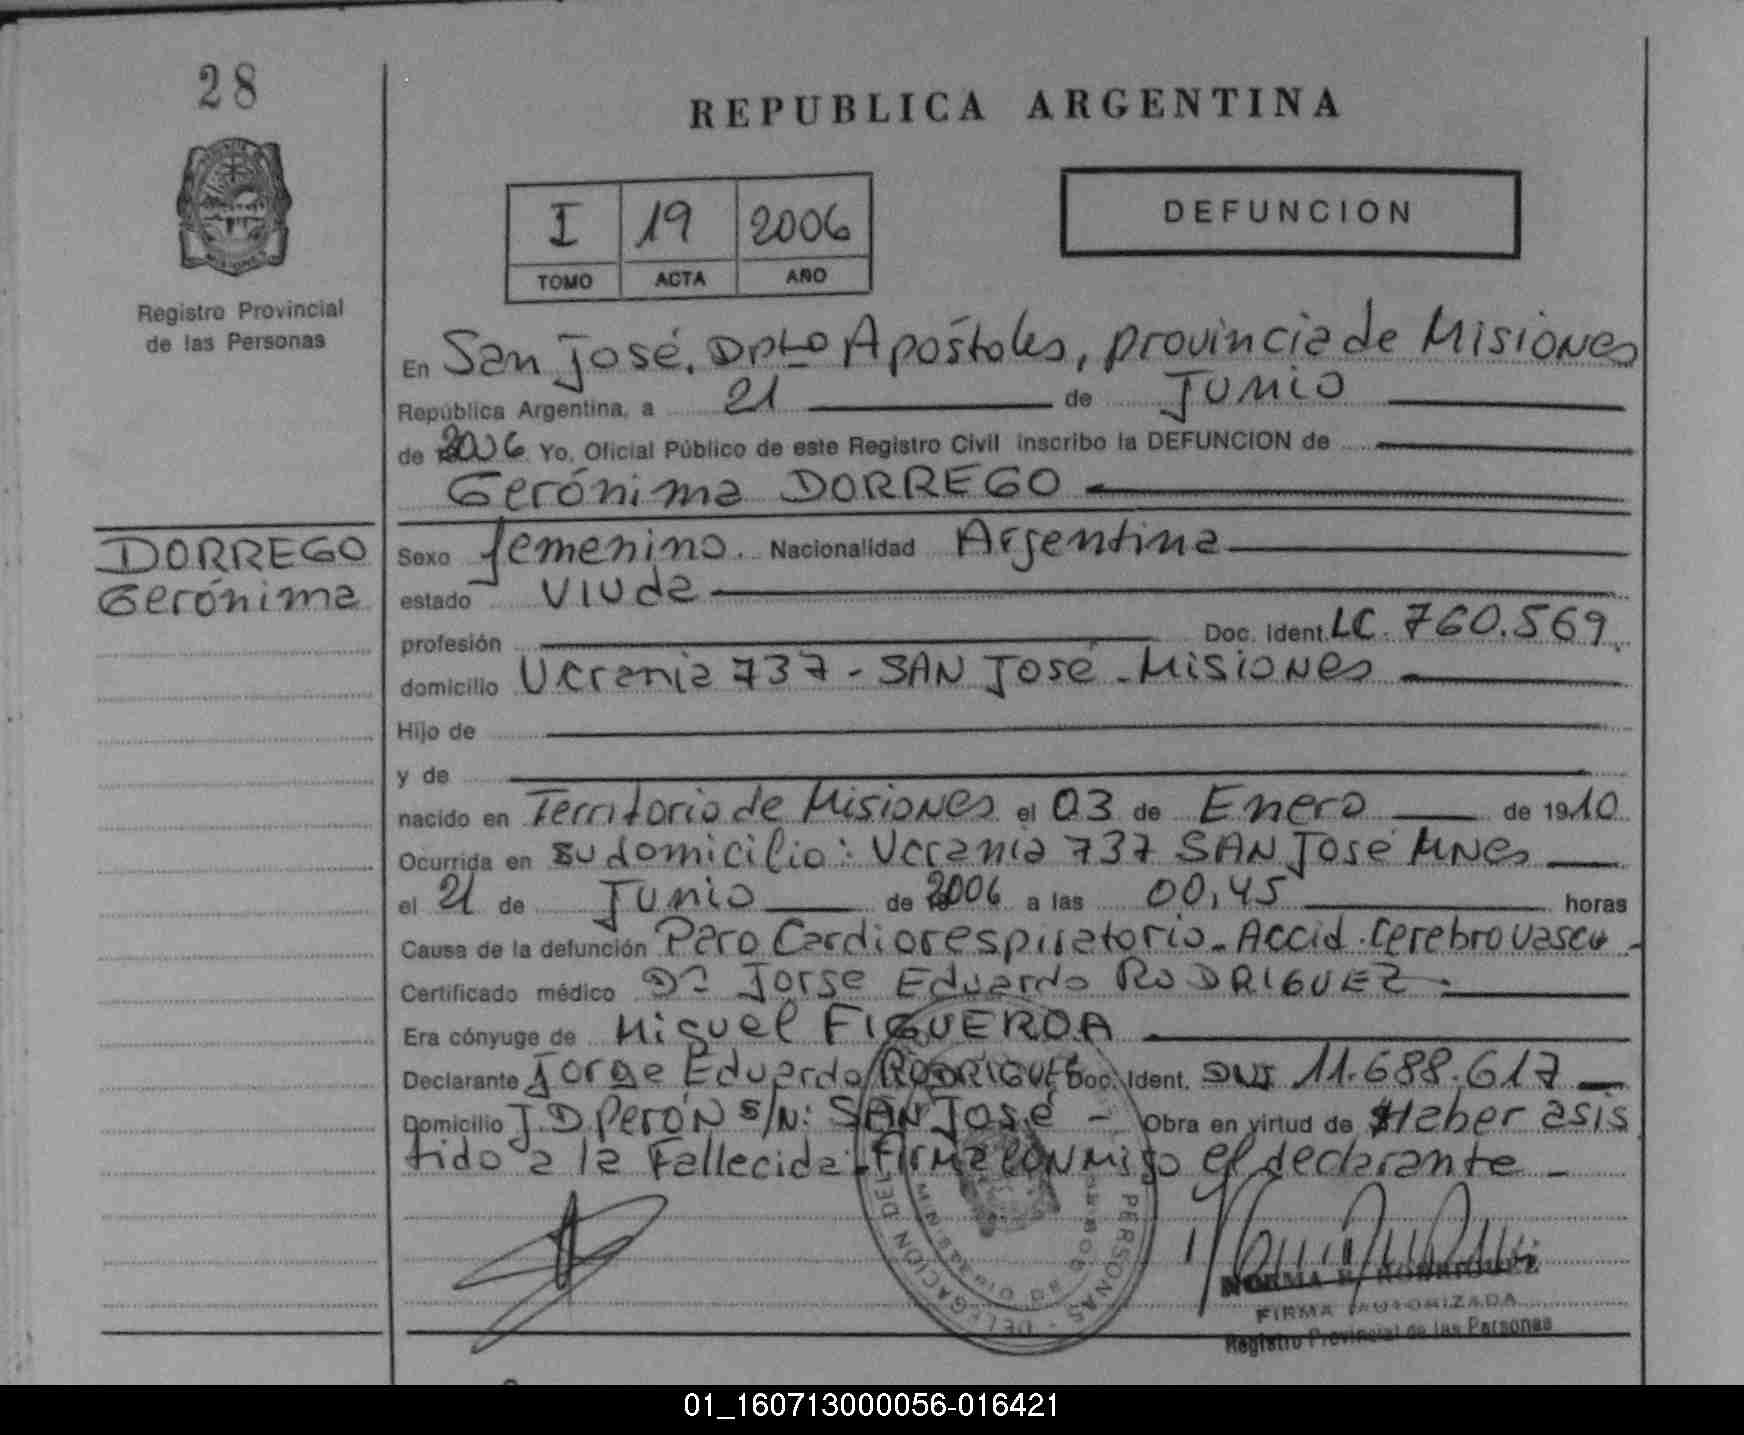 28
REPUBLICA ARGENTINA
DEFUNCION
I 19 2006
TOMO ACTA AÑO
Registro Provincial
de las Personas
En San José, Dpto Apóstoles, provincia de Misiones
República Argentina, a 21 de Junio
de 2006 Yo, Oficial Público de este Registro Civil inscribo la DEFUNCION de
Gerónima DORREGO
DORREGO
Gerónima
Sexo femenino. Nacionalidad Argentina
estado viuda
profesión Doc. Ident. LC. 760.569
domicilio Ucrania 737 - SAN José - Misiones
Hijo de
y de
nacido en Territorio de Misiones el 03 de Enero de 1910
Ocurrida en su domicilio: Ucrania 737 SAN José MNes
el 21 de Junio de 2006 a las 00,45 horas
Causa de la defunción Paro Cardiorespiratorio - Accid. Cerebrovascu -
Certificado médico Dr Jorge Eduardo RODRIGUEZ.
Era cónyuge de Miguel FIGUEROA
Declarante Jorge Eduardo RODRIGUEZ Doc. Ident. DNI 11.688.617
Domicilio J.D. Perón s/N: SAN José - Obra en virtud de Haber asis
tido a la Fallecida. Firma conmigo el declarante -
DELEGACION DEL PERSONAS
NORMA B. RODRIGUEZ
FIRMA AUTORIZADA
Registro Provincial de las Personas
01_160713000056-016421